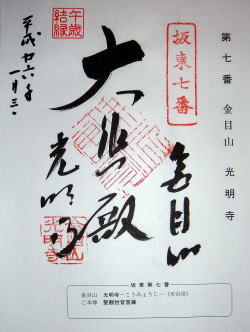 第七番 金目山 光明寺
坂東七番
金目山
大悲殿
光明寺
午歳
結縁
平成廿六年
一月三日
坂東第七番
金目山 光明寺-こうみょうじ-(天台宗)
ご本尊 聖観世音菩薩